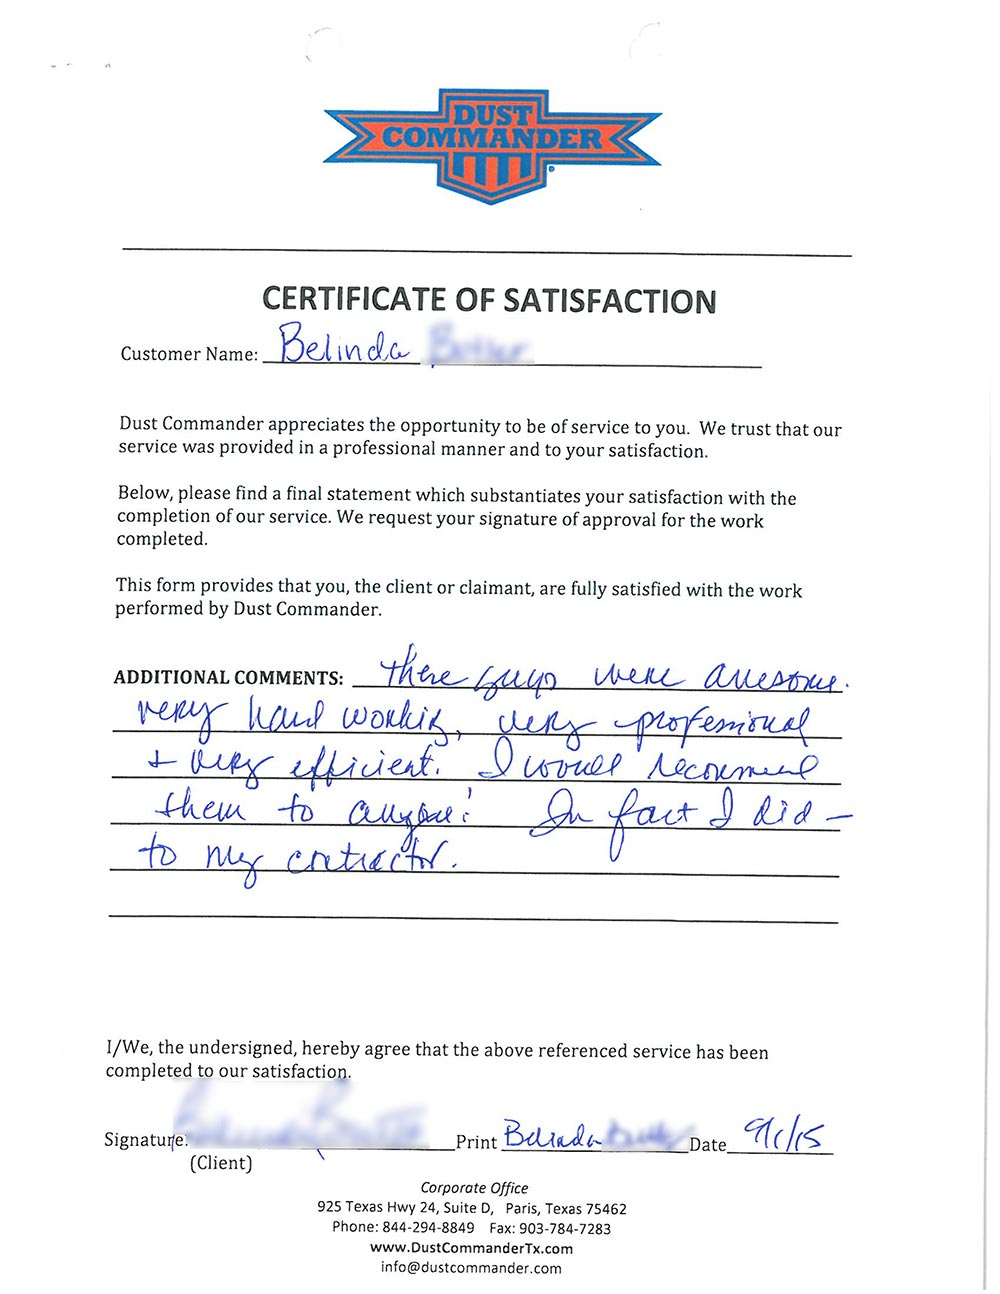 DUST
COMMANDER
CERTIFICATE OF SATISFACTION
Customer Name: Belinda
Dust Commander appreciates the opportunity to be of service to you. We trust that our
service was provided in a professional manner and to your satisfaction.
Below, please find a final statement which substantiates your satisfaction with the
completion of our service. We request your signature of approval for the work
completed.
This form provides that you, the client or claimant, are fully satisfied with the work
performed by Dust Commander.
ADDITIONAL COMMENTS: these guys were awesome.
very hard working, very professional
+ very efficient. I would recommend
them to anyone! In fact I did –
to my contractor.
I/We, the undersigned, hereby agree that the above referenced service has been
completed to our satisfaction.
Signature: Print Belinda Date 9/1/15
(Client)
Corporate Office
925 Texas Hwy 24, Suite D, Paris, Texas 75462
Phone: 844-294-8849 Fax: 903-784-7283
www.DustCommanderTx.com
info@dustcommander.com